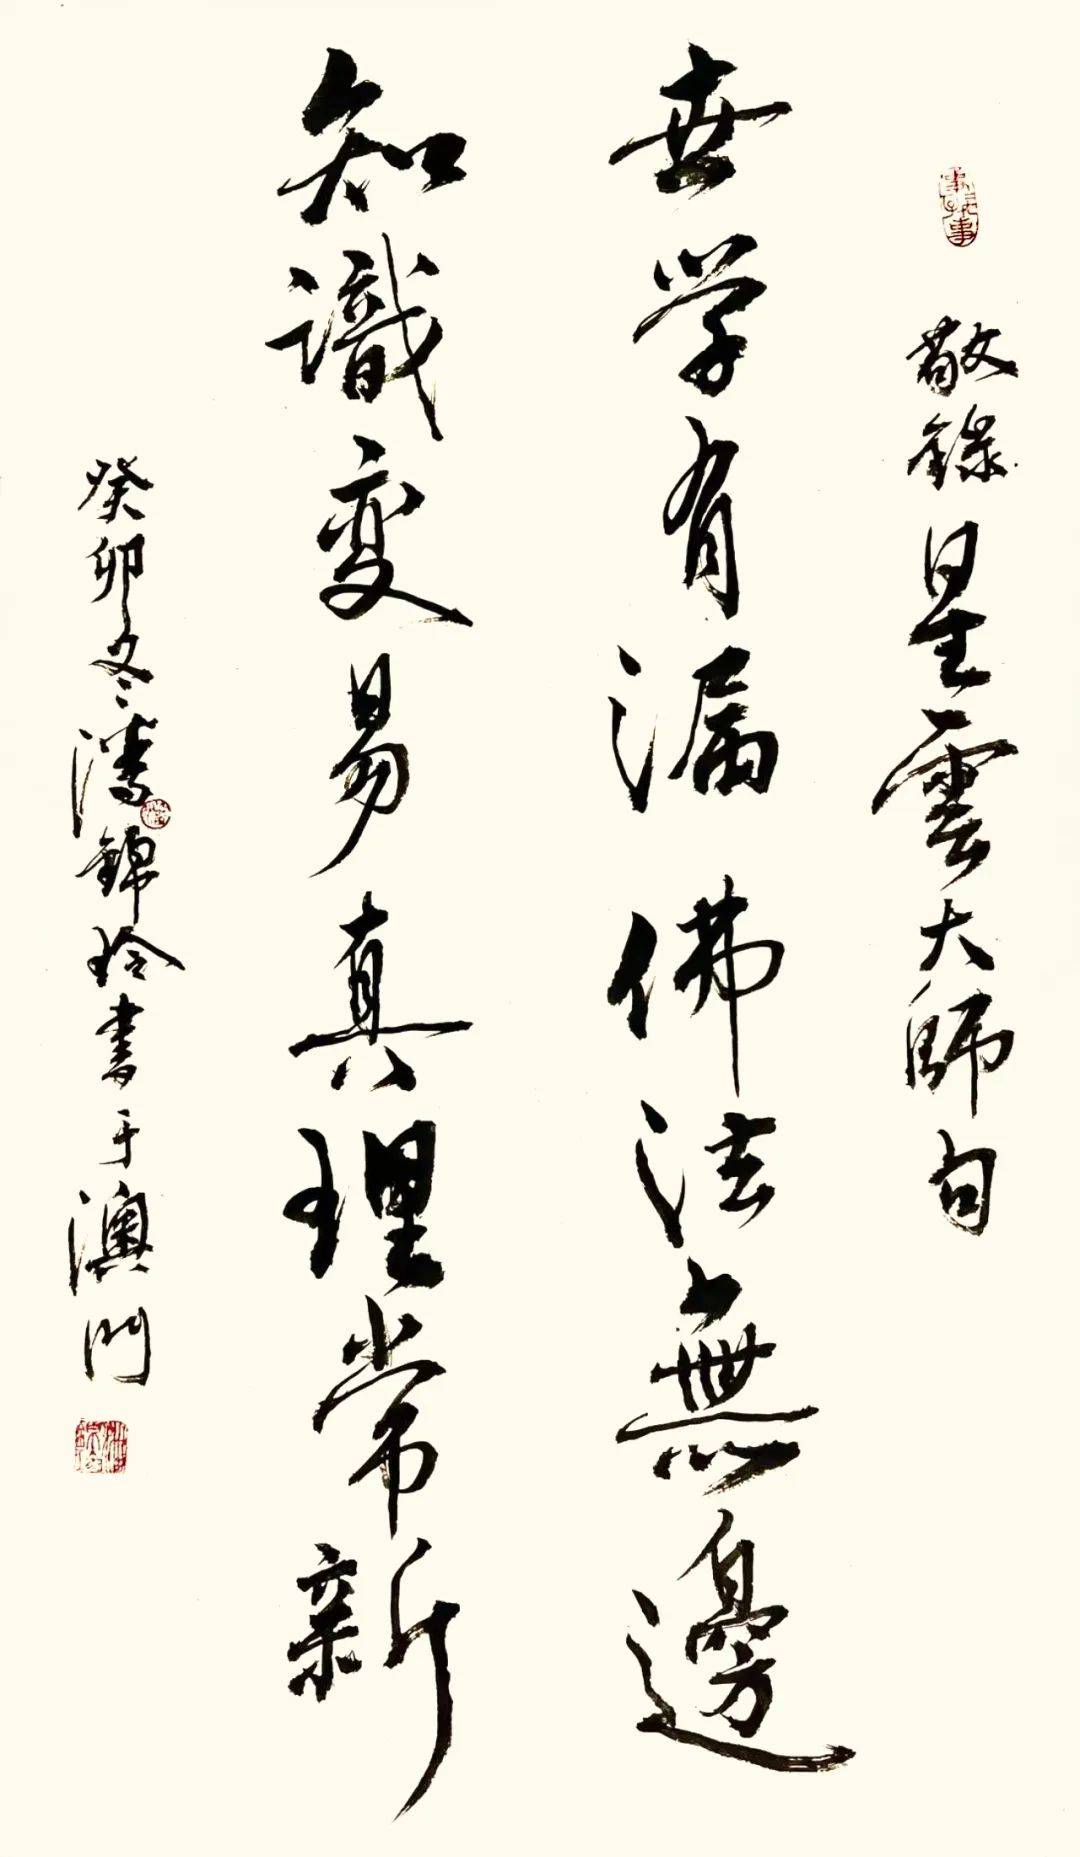 敬錄星雲大師句
世学有漏佛法無邊
知識変易真理常新
癸卯冬潘錦玲書于澳門